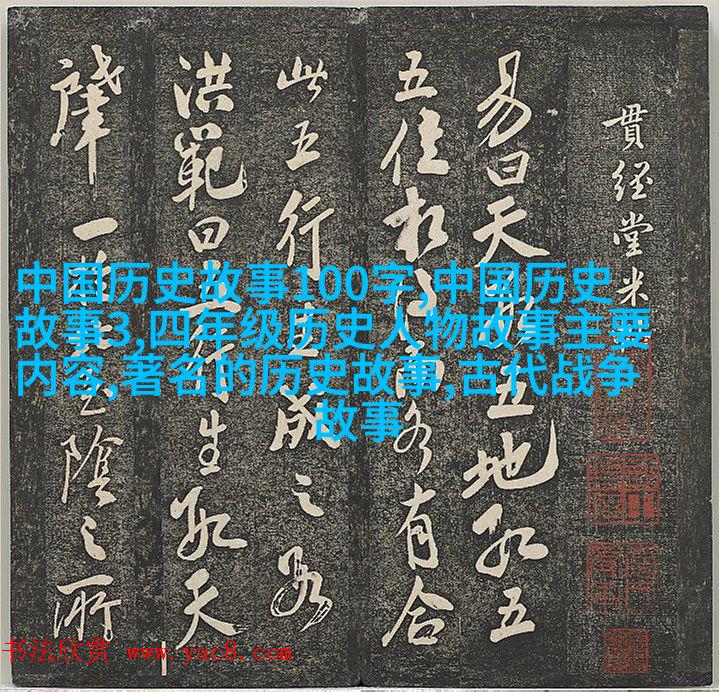 中国历史故事100字,中国历史
故事3,四年级历史人物故事主要
内容,著名的历史故事,古代战争
故事
貫經堂米
易曰天五地數五
五位相得而各有合
此五行生成之數
洪範曰五行生數天
一陰之所
书法欣赏 www.yac8.com